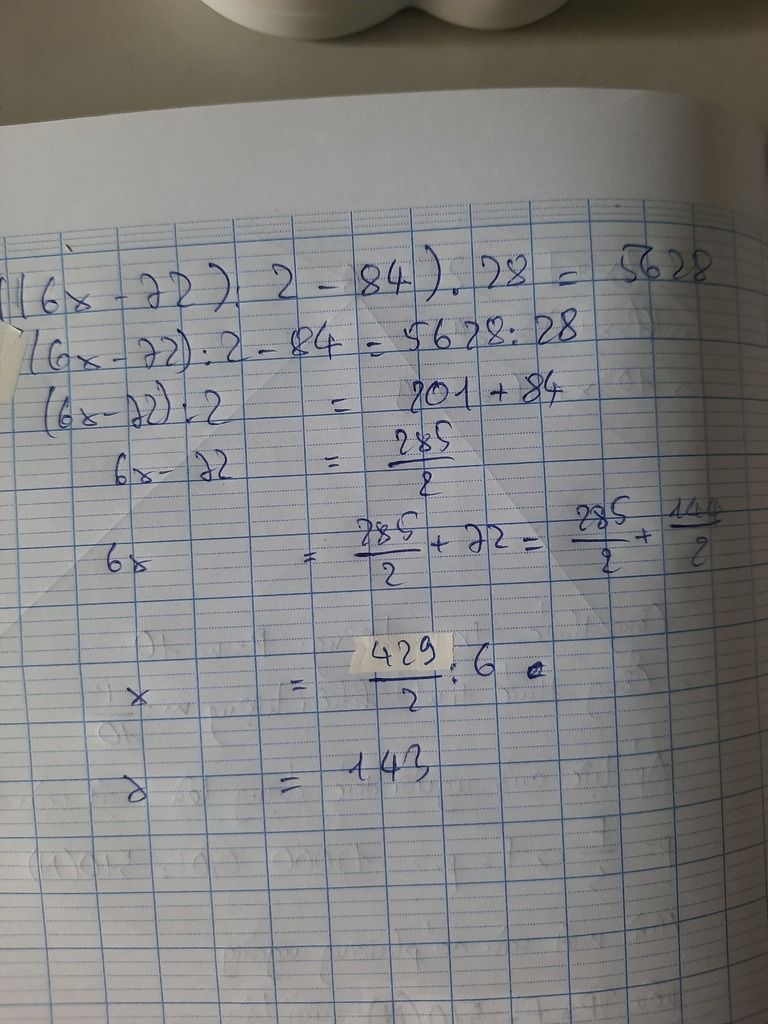 ((6x - 72) : 2 - 84) . 28 = 5628
(6x - 72) : 2 - 84 = 5628 : 28
(6x - 72) : 2 = 201 + 84
6x - 72 = 285/2
6x = 285/2 + 72 = 285/2 + 144/2
x = 429/2 : 6
x = 143